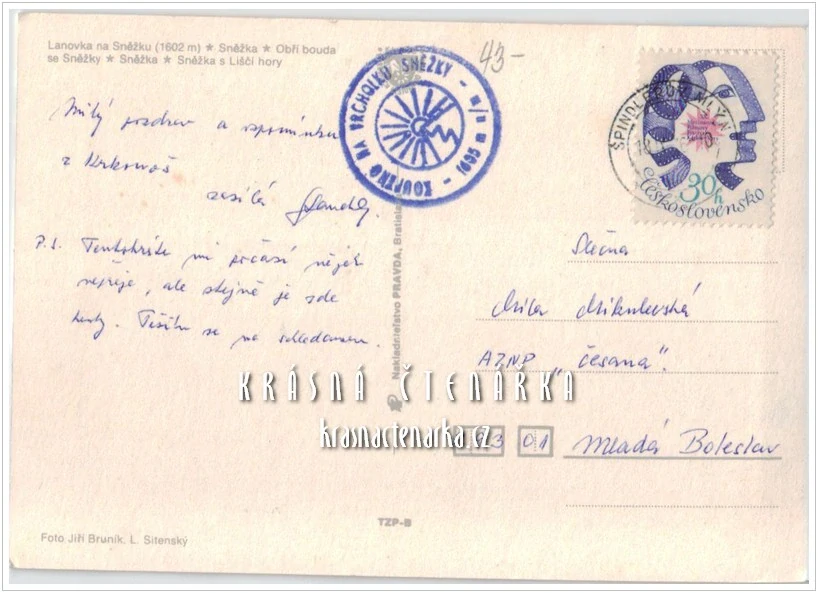 Lanovka na Sněžku (1602 m) ★ Sněžka ★ Obří bouda
se Sněžky ★ Sněžka ★ Sněžka s Liščí hory
43-
KOUPENO NA VRCHOLKU SNĚŽKY – 1605 m n/m –
ŠPINDLERŮV MLÝN
30h
Československo
Milý pozdrav a vzpomínku
z Krkonoš
zasílá
P.S. Tentokráte mi počasí nějak
nepřeje, ale stejně je zde
hezky. Těším se na shledanou.
Slečna
Mila Mikulovská
AZNP „Česana".
Mladá Boleslav
3 01
Nakladatelstvo PRAVDA, Bratislava
KRÁSNÁ ČTENÁŘKA
krasnactenarka.cz
TZP-B
Foto Jiří Bruník, L. Sitenský